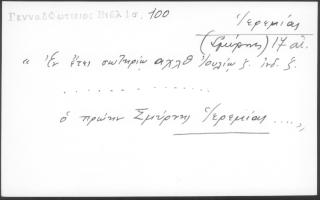 Γενναδ. Φωτιεὶος Βιβλιο., 100
Ἱερεμίας
(Σμύρνης) 17 αἰ.
" Ἐν ἔτει σωτηρίῳ αχλθ Ἰουλίῳ ζ. ἰνδ. ζ.
. . . . . . . . . . . . .
ὁ πρώην Σμύρνης Ἱερεμίας ....,